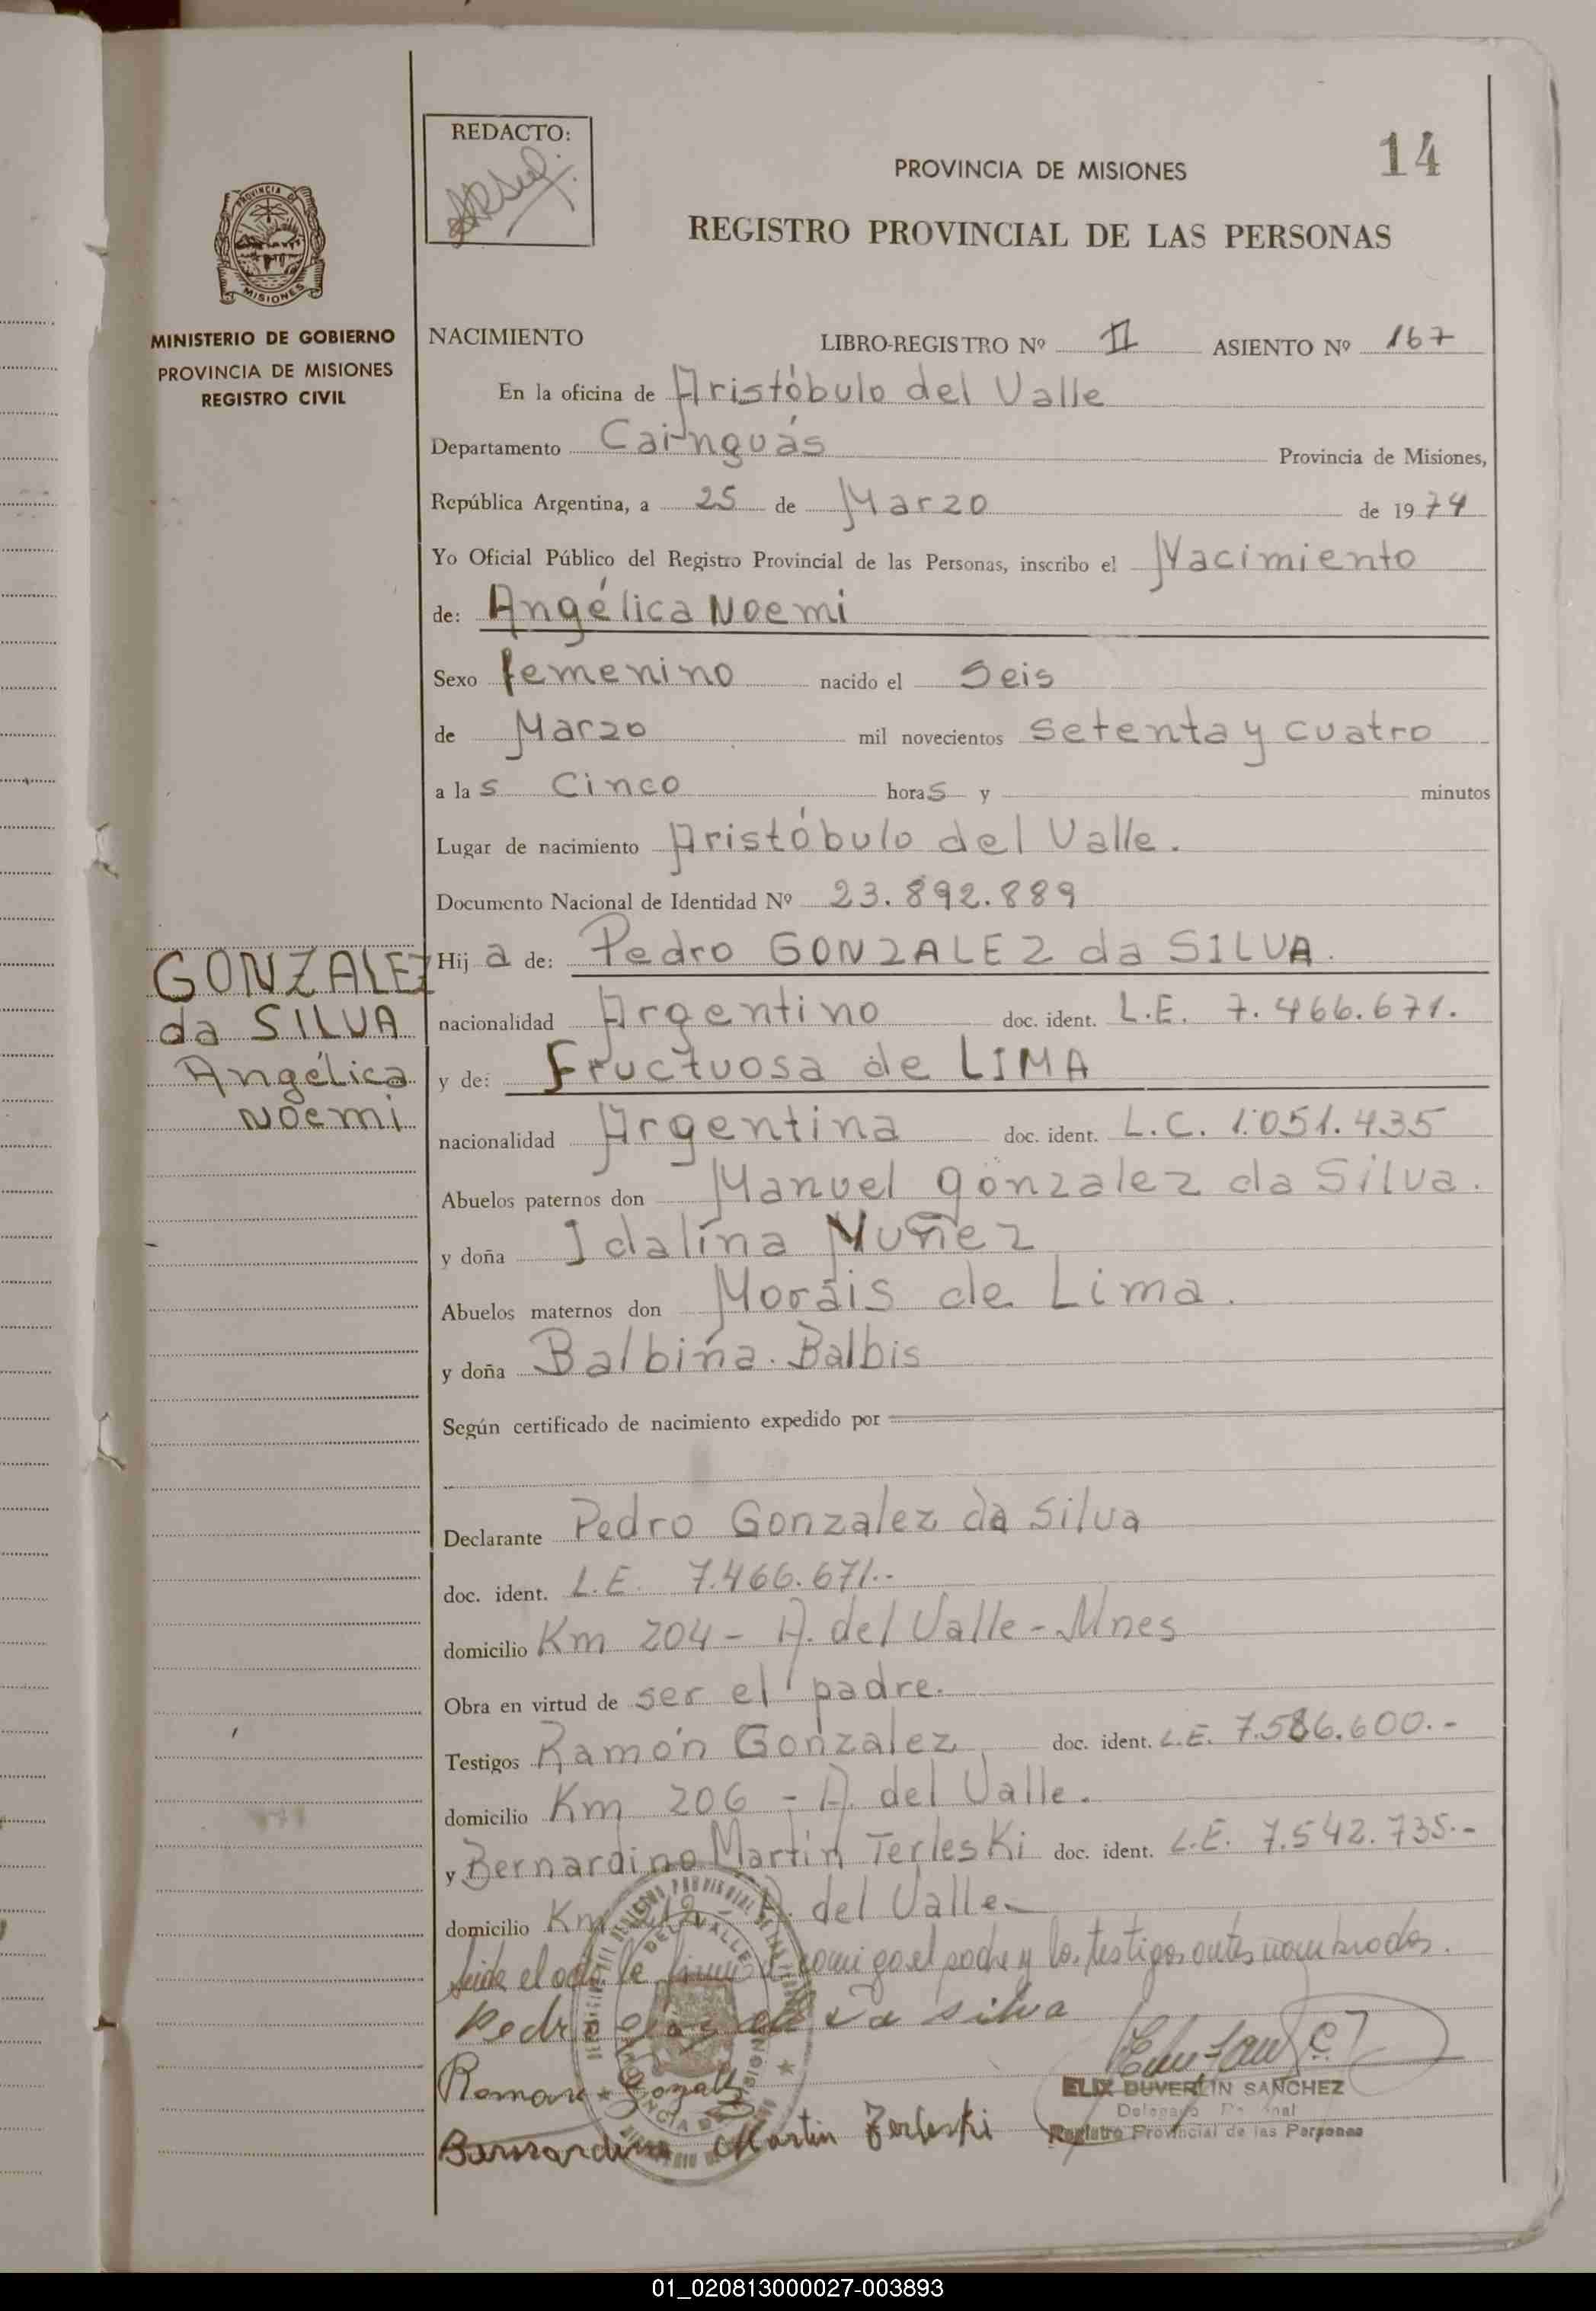 REDACTO:
14
PROVINCIA DE MISIONES
REGISTRO PROVINCIAL DE LAS PERSONAS
PROVINCIA
MISIONES
MINISTERIO DE GOBIERNO
PROVINCIA DE MISIONES
REGISTRO CIVIL
NACIMIENTO LIBRO-REGISTRO Nº II ASIENTO Nº 167
En la oficina de Aristóbulo del Valle
Departamento Cainguás Provincia de Misiones,
República Argentina, a 25 de Marzo de 1974
Yo Oficial Público del Registro Provincial de las Personas, inscribo el Nacimiento
de: Angélica Noemi
Sexo femenino nacido el Seis
de Marzo mil novecientos setenta y cuatro
a las Cinco horas y minutos
Lugar de nacimiento Aristóbulo del Valle.
Documento Nacional de Identidad Nº 23.892.889
GONZALEZ
da SILVA
Angélica
Noemi
Hija de: Pedro GONZALEZ da SILVA.
nacionalidad Argentino doc. ident. L.E. 7.466.671.
y de: Fructuosa de LIMA
nacionalidad Argentina doc. ident. L.C. 1.051.435
Abuelos paternos don Manuel gonzalez da Silva.
y doña Idalina Muñez
Abuelos maternos don Morais de Lima.
y doña Balbina Balbis
Según certificado de nacimiento expedido por
Declarante Pedro Gonzalez da Silva
doc. ident. L.E. 7.466.671.-
domicilio Km 204 - A. del Valle - Mnes
Obra en virtud de ser el padre.
Testigos Ramón Gonzalez, doc. ident. L.E. 7.586.600.-
domicilio Km 206 - A. del Valle.
y Bernardino Martin Terleski doc. ident. L.E. 7.542.735.-
domicilio Km A. del Valle.
el padre y los testigos antes nombrados.
Pedro da silva
Roman Gozalez
Bernardino Martin Terleski
ELIX DUVERLIN SANCHEZ
Registro Provincial de las Personas
01_020813000027-003893